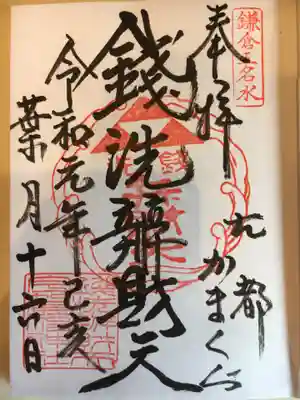 鎌倉五名水
奉拝
古都
かまくら
銭洗
錢洗辨財天
令和元年己亥
葉月十六日